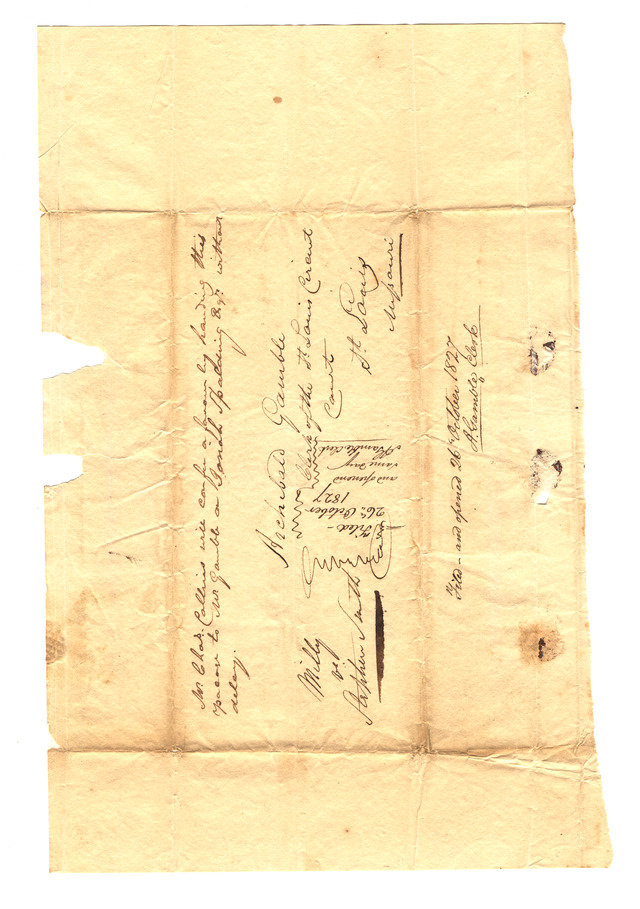 Mr Chas. Collins will confer a favour by handing this
paper to Mr Gamble or Josiah Spalding Esqr. without
delay.
Archibald Gamble
Clerk of the St Louis Circuit
Court
St Louis
Missouri
Milly
vs
Stephen Smith
Filed -
26th October
1827
and opened
same day
A Gamble Clerk
Filed - and opened 26 October 1827
A Gamble, Clerk